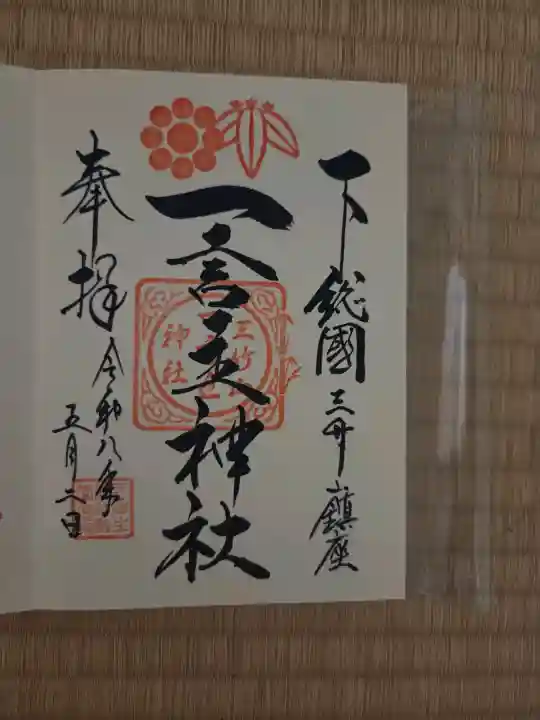 下総國三竹山鎮座
一言主神社
三竹山
神社
奉拝
令和八年
五月二日